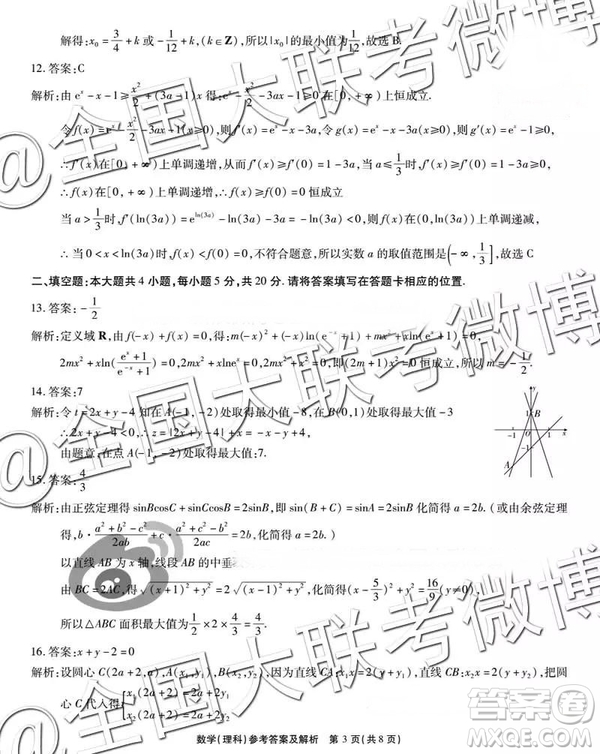 解得:x₀=3/4+k或-1/12+k,(k∈Z),所以|x₀|的最小值为1/12,故选B.
12.答案:C
解析:由eˣ-x-1≥x²/2+(3a-1)x得:eˣ-x²/2-3ax-1≥0在[0,+∞)上恒成立.
f′(x)=eˣ-x-3a,令g(x)=eˣ-x(x≥0),则g′(x)=eˣ-1≥0,
∴f′(x)在[0,+∞)上单调递增,从而f′(x)≥f′(0)=1-3a,当a≤1/3时,f′(0)=1-3a≥0,
∴f(x)在[0,+∞)上单调递增,∴f(x)≥f(0)=0恒成立
当a>1/3时,f′(ln(3a))=e^{ln(3a)}-ln(3a)-3a=-ln(3a)<0,则f(x)在[0,ln(3a)]上单调递减,
∴当0<x<ln(3a)时,f(x)<f(0)=0,不符合题意,所以实数a的取值范围是(-∞,1/3],故选C.
二、填空题:本大题共4小题,每小题5分,共20分.请将答案填写在答题卡相应的位置.
13.答案:-1/2
解析:定义域R,由f(-x)+f(x)=0,得:m(-x)²+(-x)ln(e⁻ˣ+1)+mx²+xln(eˣ+1)=0,
2mx²+xln((eˣ+1)/(e⁻ˣ+1))=0,2mx²+xlneˣ=0,2mx²+x²=0,即(2m+1)x²=0恒成立,所以m=-1/2.
14.答案:7
解析:令t=2x+y-4知在A(-1,-2)处取得最小值-8,在B(0,1)处取得最大值-3
∴2x+y-4<0,∴z=|2x+y-4|+x=-x-y+4,
由题意,在点A(-1,-2)处取得最大值:7.
15.答案:4/3
解析:由正弦定理得sinBcosC+sinCcosB=2sinB,即sin(B+C)=sinA=2sinB化简得a=2b.(或由余弦定理
得,b·(a²+b²-c²)/2ab+c·(a²+c²-b²)/2ac=2b,化简得a=2b.)
以直线AB为x轴,线段AB的中垂
由BC=2AC,得√((x+1)²+y²)=2√((x-1)²+y²),化简得(x-5/3)²+y²=16/9(y≠0),
所以△ABC面积最大值为1/2×2×4/3=4/3.
16.答案:x+y-2=0
解析:设圆心C(2a+2,a),A(x₁,y₁),B(x₂,y₂),因为直线CA:x₁x=2(y+y₁),直线CB:x₂x=2(y+y₂),把圆
心C代人得{x₁(2a+2)=2a+2y₁
x₂(2a+2)=2a+2y₂
数学(理科)参考答案及解析 第3页(共8页)
@全国大联考微博
@全国大联考微博
@全国大联考微博
答案圈